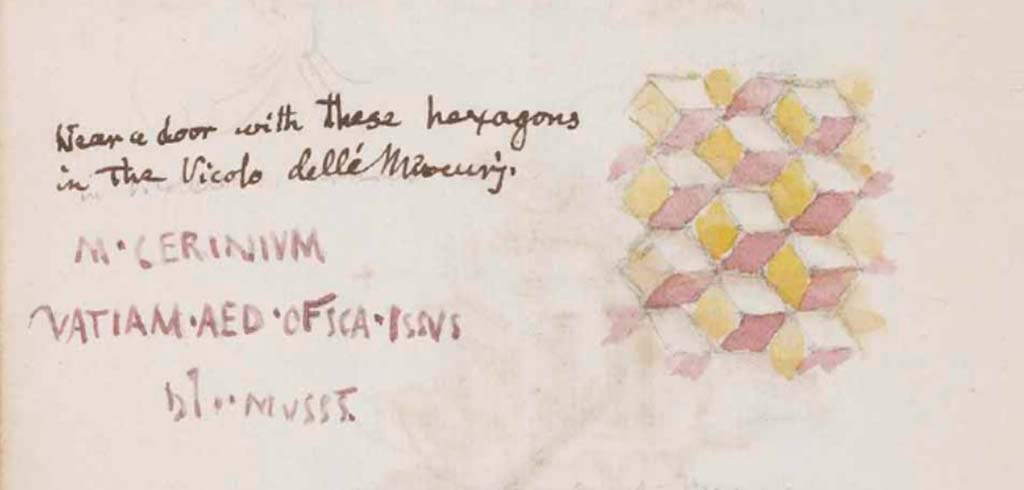 Near a door with these hexagons
in the Vicolo dellé Mercurj.
M·CERINIVM
VATIAM·AED·OFSCA·ISSVS